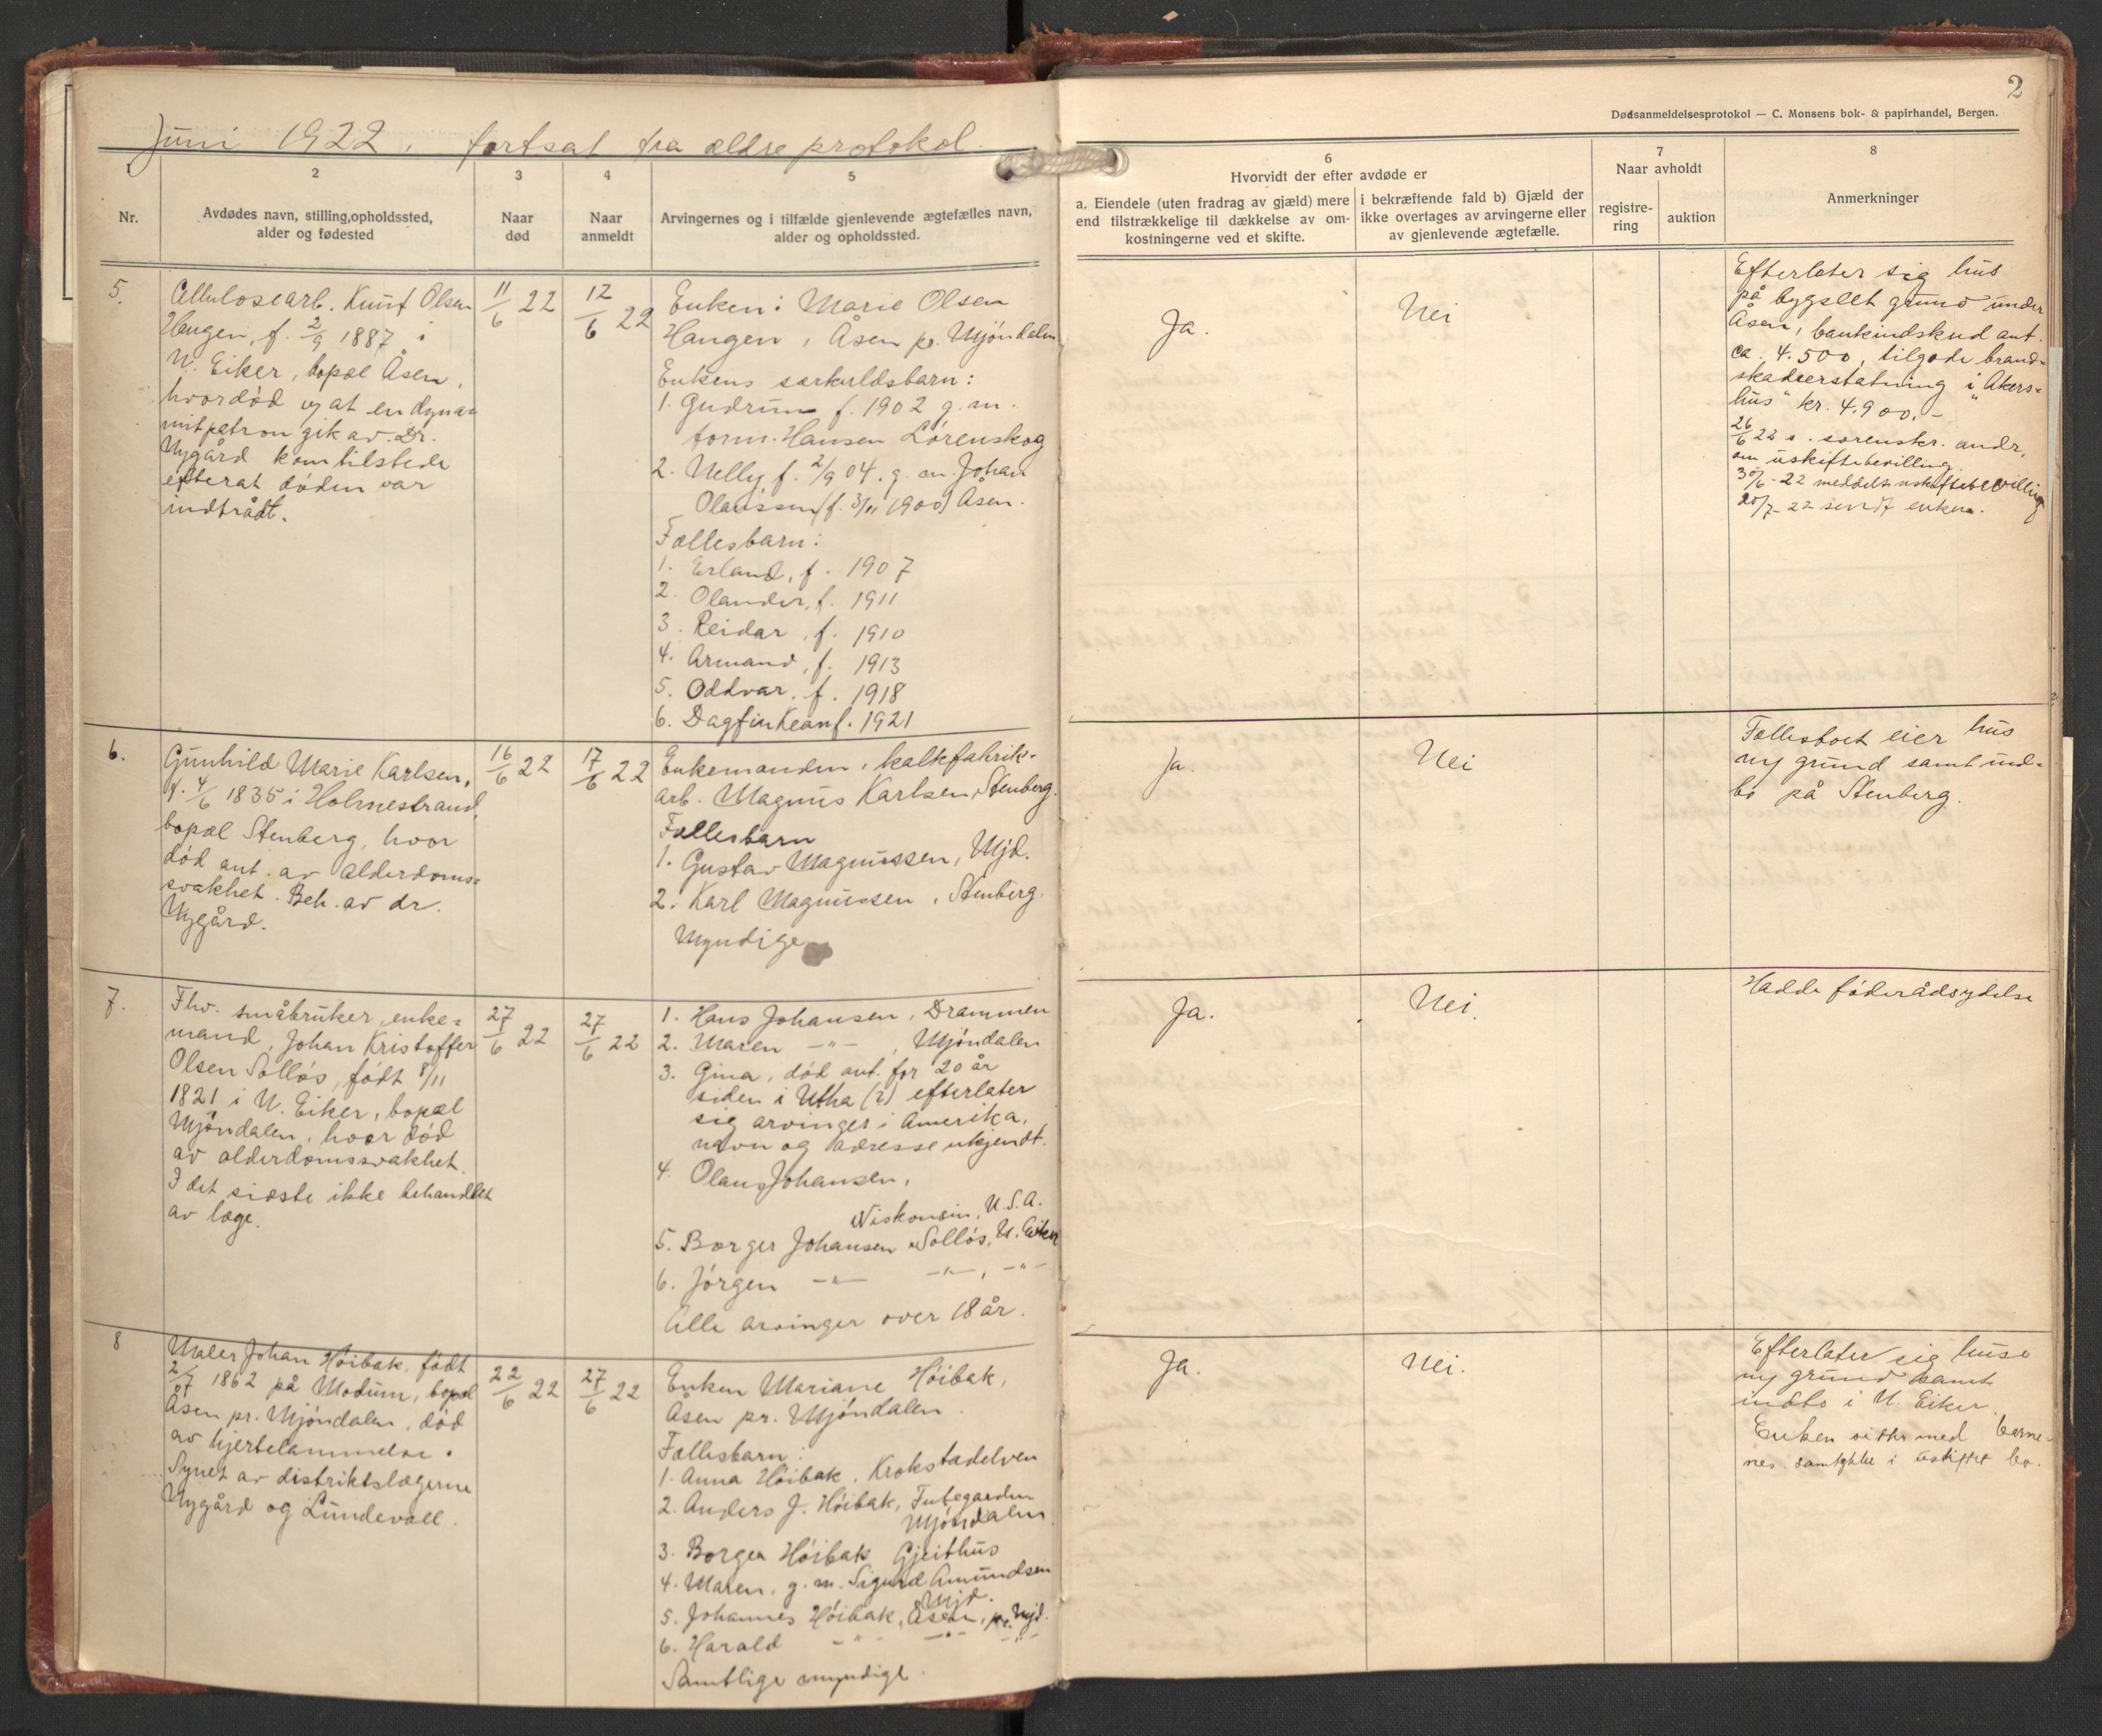 2
Dødsanmeldelsesprotokol — C. Monsens bok- & papirhandel, Bergen.
Juni 1922. fortsat fra ældre protokol.
Nr.
2
Avdødes navn, stilling, opholdssted,
alder og fødested
3
Naar
død
4
Naar
anmeldt
5
Arvingernes og i tilfælde gjenlevende ægtefælles navn,
alder og opholdssted.
6
Hvorvidt der efter avdøde er
a. Eiendele (uten fradrag av gjæld) mere
end tilstrækkelige til dækkelse av om-
kostningerne ved et skifte.
i bekræftende fald b) Gjæld der
ikke overtages av arvingerne eller
av gjenlevende ægtefælle.
7
Naar avholdt
registre-
ring
auktion
8
Anmerkninger
5.
Cellulosearb. Knut Olsen
Haugen, f. 2/9 1887 i
N. Eiker, bopæl Åsen,
hvor død ved at en dyna-
mitpatron gik av. Dr.
Nygård kom tilstede
efterat døden var
indtrådt.
11/6 22
12/6 22
Enken: Marie Olsen
Haugen, Åsen pr. Mjøndalen
Enkens særkuldsbarn:
1. Gudrun f. 1902 g. m.
form. Hansen Lørenskog
2. Nelly f. 2/9 04. g. m. Johan
Olaussen (f. 3/11 1900) Åsen.
Fællesbarn:
1. Erland, f. 1907
2. Olander, f. 1911
3. Reidar, f. 1910
4. Armand, f. 1913
5. Oddvar, f. 1918
6. Dagfin Kean f. 1921
Ja.
Nei
Efterlater sig hus
på bygslet grund under
Åsen, bankindskud ant.
ca. 4.500, tilgode brand-
skadeerstatning i "Akers-
hus" kr. 4.900.-
26/6 22 s. sorenskr. andr.
om uskiftebevilling.
30/6-22 meddelt uskiftebevilling
20/7-22 sendt enken.
6.
Gunhild Marie Karlsen,
f. 4/6 1835 i Holmestrand,
bopæl Stenberg, hvor
død ant. av alderdoms-
svakhet. Beh. av dr.
Nygård.
16/6 22
17/6 22
Enkemanden, kalkfabrik-
arb. Magnus Karlsen, Stenberg.
Fællesbarn
1. Gustav Magnussen, Mjd.
2. Karl Magnussen, Stenberg.
Myndige
Ja.
Nei
Fællesboet eier hus
m/ grund samt ind-
bo på Stenberg.
7.
Fhv. småbruker, enke-
mand, Johan Kristoffer
Olsen Solløs, født 8/11
1821 i N. Eiker, bopæl
Mjøndalen, hvor død
av alderdomssvakhet.
I det sidste ikke behandlet
av læge.
27/6 22
27/6 22
1. Hans Johansen, Drammen
2. Maren -"- , Mjøndalen
3. Gina, død ant. for 20 år
siden i Utha (?) efterlater
sig arvinger i Amerika,
navn og adresse ukjendt.
4. Olaus Johansen,
Wiskonsin, U.S.A.
5. Borger Johansen Solløs, N. Eiker
6. Jørgen -"- -"-, -"-
Alle arvinger over 18 år.
Ja.
Nei.
Hadde føderådsydelse
8
Maler Johan Høibak, født
2/7 1862 på Modum, bopæl
Åsen pr. Mjøndalen, død
av hjertelammelse.
Synet av distriktslægerne
Nygård og Lundevall.
22/6 22
27/6 22
Enken Mariane Høibak,
Åsen pr. Mjøndalen.
Fællesbarn:
1. Anna Høibak, Krokstadelven
2. Anders J. Høibak,
Mjøndalen
3. Borger Høibak Gjeithus
4. Maren, g. m. Sigurd Amundsen
Mjd.
5. Johannes Høibak, Åsen, pr. Mjd.
6. Harald -"- -"- -"-
Samtlige myndige.
Ja.
Nei.
Efterlater sig huse
m/ grund samt
indbo i N. Eiker.
Enken sitter med barne-
nes samtykke i uskiftet bo.